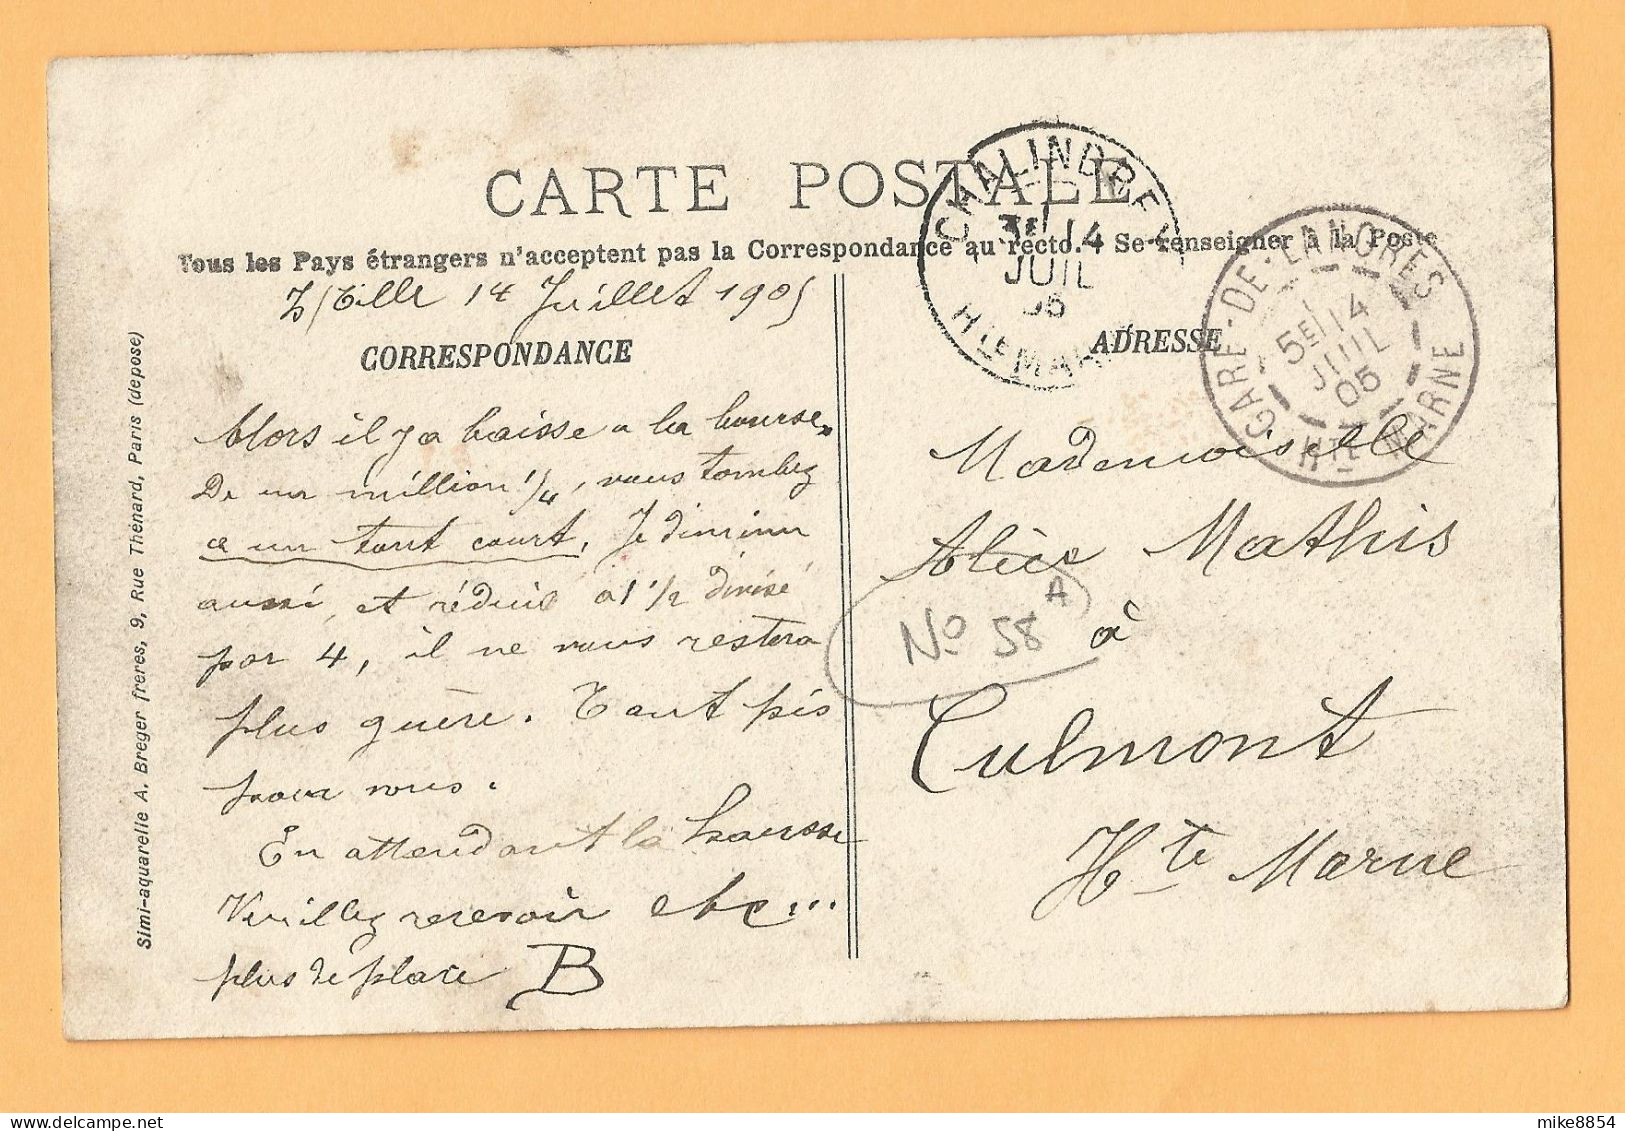 CARTE POSTALE
Tous les Pays étrangers n'acceptent pas la Correspondance au recto. Se renseigner à la Poste
CHALINDREY
14
JUIL
05
HTE MAR
GARE-DE-LANGRES
5E 14
JUIL
05
HTE MARNE
Is/Tille 14 Juillet 1905
CORRESPONDANCE
ADRESSE
Alors il y a baisse a la bourse.
De un million 1/4, vous tombez
a un tout court. Je diminu
aussi et réduis a 1 1/2 divisé
par 4, il ne vous restera
plus guère. Tant pis
pour vous.
En attendant la hausse
Veuillez recevoir etc...
plus de place B
Mademoiselle
Alice Mathis
à
Culmont
Hte Marne
No 58 A
Simi-aquarelle A. Breger freres, 9, Rue Thénard, Paris (depose)
mike8854